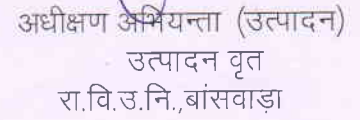 अधीक्षण अभियन्ता (उत्पादन)
उत्पादन वृत
रा.वि.उ.नि.,बांसवाड़ा